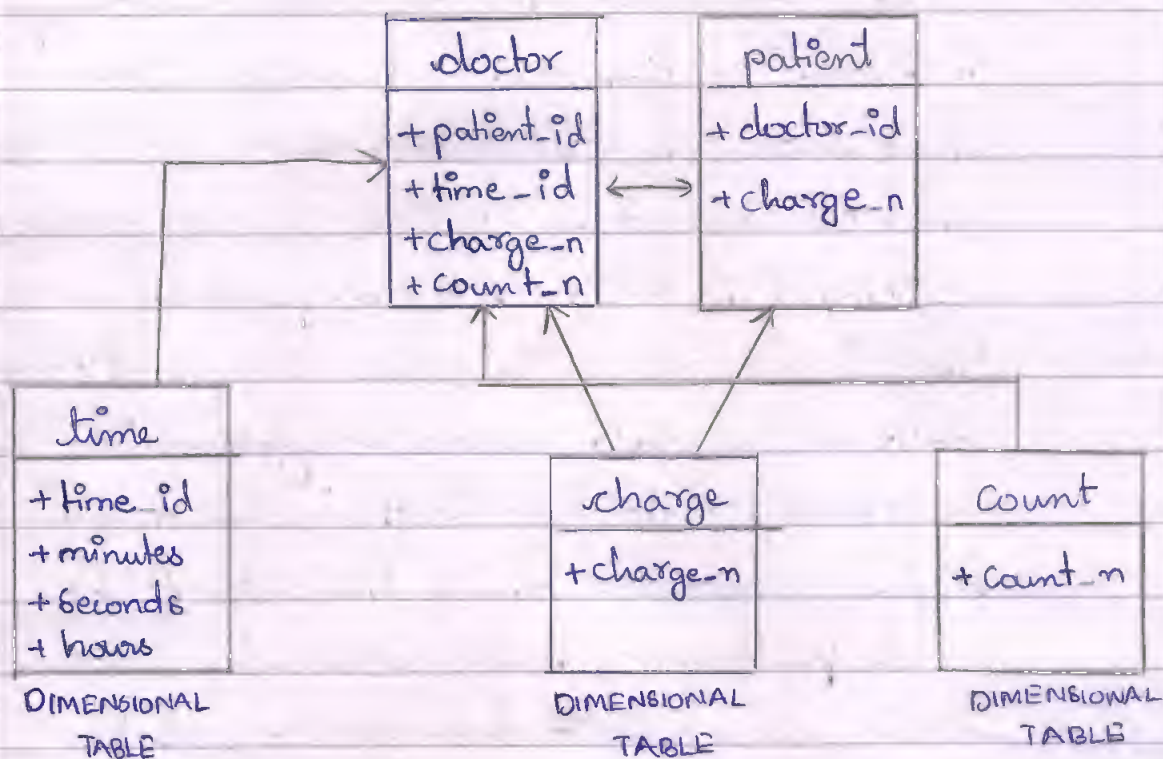 doctor
+ patient_id
+ time_id
+ charge_n
+ count_n
patient
+ doctor_id
+ charge_n
time
+ time_id
+ minutes
+ seconds
+ hours
DIMENSIONAL
TABLE
charge
+ charge_n
DIMENSIONAL
TABLE
count
+ count_n
DIMENSIONAL
TABLE